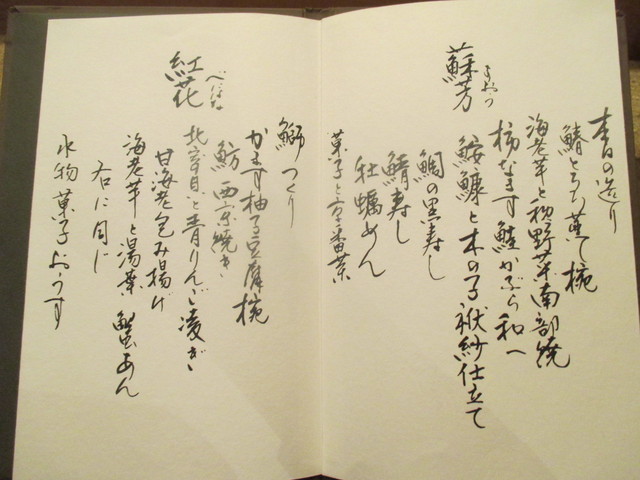 蘇芳
すおう
本日の造り
鰆とろろ蒸し椀
海老芋と秋野菜南部焼
柿なます 鮭かぶら和へ
鮟鱇と木の子袱紗仕立て
鯛の黒寿し
鯖寿し
牡蠣めん
菓子と京番茶
紅花
べにばな
鰤つくり
かます柚子豆腐椀
魴 西京焼き
北寄貝と青りんご凌ぎ
甘海老包み揚げ
海老芋と湯葉 蟹あん
右に同じ
水物 菓子 おうす